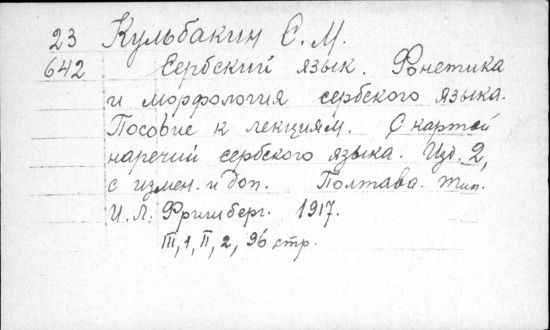 23 Кульбакин С. М.
642 Сербский язык. Фонетика
и морфология сербского языка.
Пособие к лекциям. С картой
наречий сербского языка. Изд. 2,
с измен. и доп. Полтава. тип.
И. Л. Фришберг. 1917.
III, 1, II, 2, 96 стр.